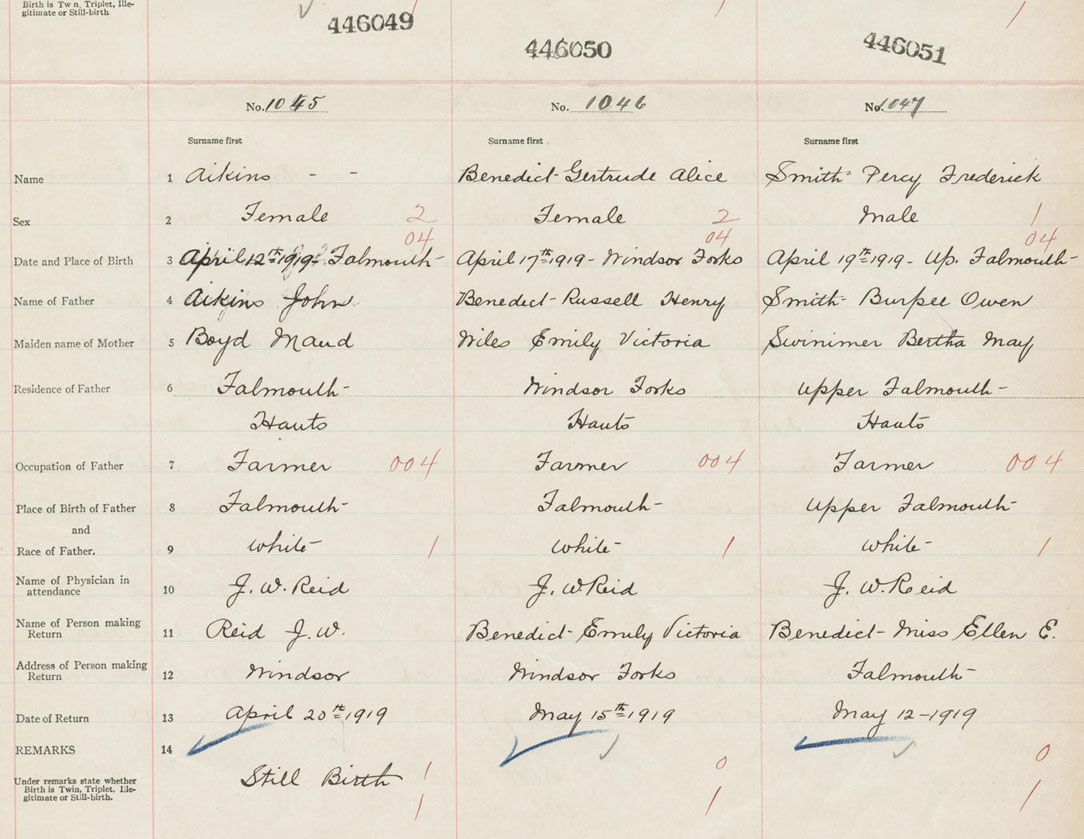 Birth is Twin, Triplet, Ille-
gitimate or Still-birth
1 1
446049 446050 446051
No. 1045 No. 1046 No. 1047
Surname first Surname first Surname first
Name 1 Aikins - - Benedict Gertrude Alice Smith Percy Frederick
Sex 2 Female 2 Female 2 Male 1
04 04 04
Date and Place of Birth 3 April 12th 1919 - Falmouth April 17th 1919 - Windsor Forks April 19th 1919 - Up. Falmouth
Name of Father 4 Aikins John Benedict - Russell Henry Smith - Burpee Owen
Maiden name of Mother 5 Boyd Maud Wiles Emily Victoria Swinimer Bertha May
Residence of Father 6 Falmouth Windsor Forks Upper Falmouth
Hants Hants Hants
Occupation of Father 7 Farmer 004 Farmer 004 Farmer 004
Place of Birth of Father 8 Falmouth Falmouth Upper Falmouth
and
Race of Father. 9 White 1 White 1 White 1
Name of Physician in
attendance 10 J. W. Reid J. W Reid J. W. Reid
Name of Person making
Return 11 Reid J. W. Benedict - Emily Victoria Benedict - Miss Ellen E.
Address of Person making
Return 12 Windsor Windsor Forks Falmouth
Date of Return 13 April 20th 1919 May 15th 1919 May 12 - 1919
REMARKS 14 0 0
Under remarks state whether
Birth is Twin, Triplet, Ille-
gitimate or Still-birth. Still Birth 1
1 1 1